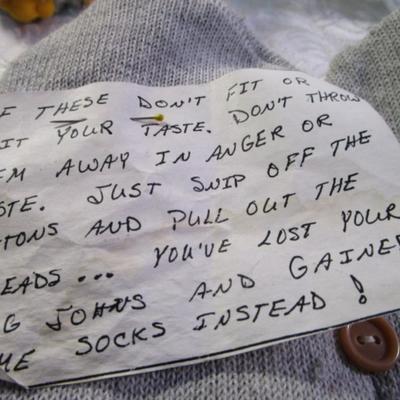 F THESE DON'T FIT OR
IT YOUR TASTE. DON'T THROW
EM AWAY IN ANGER OR
STE. JUST SNIP OFF THE
TONS AND PULL OUT THE
EADS... YOU'VE LOST YOUR
G JOHNS AND GAINED
ME SOCKS INSTEAD!